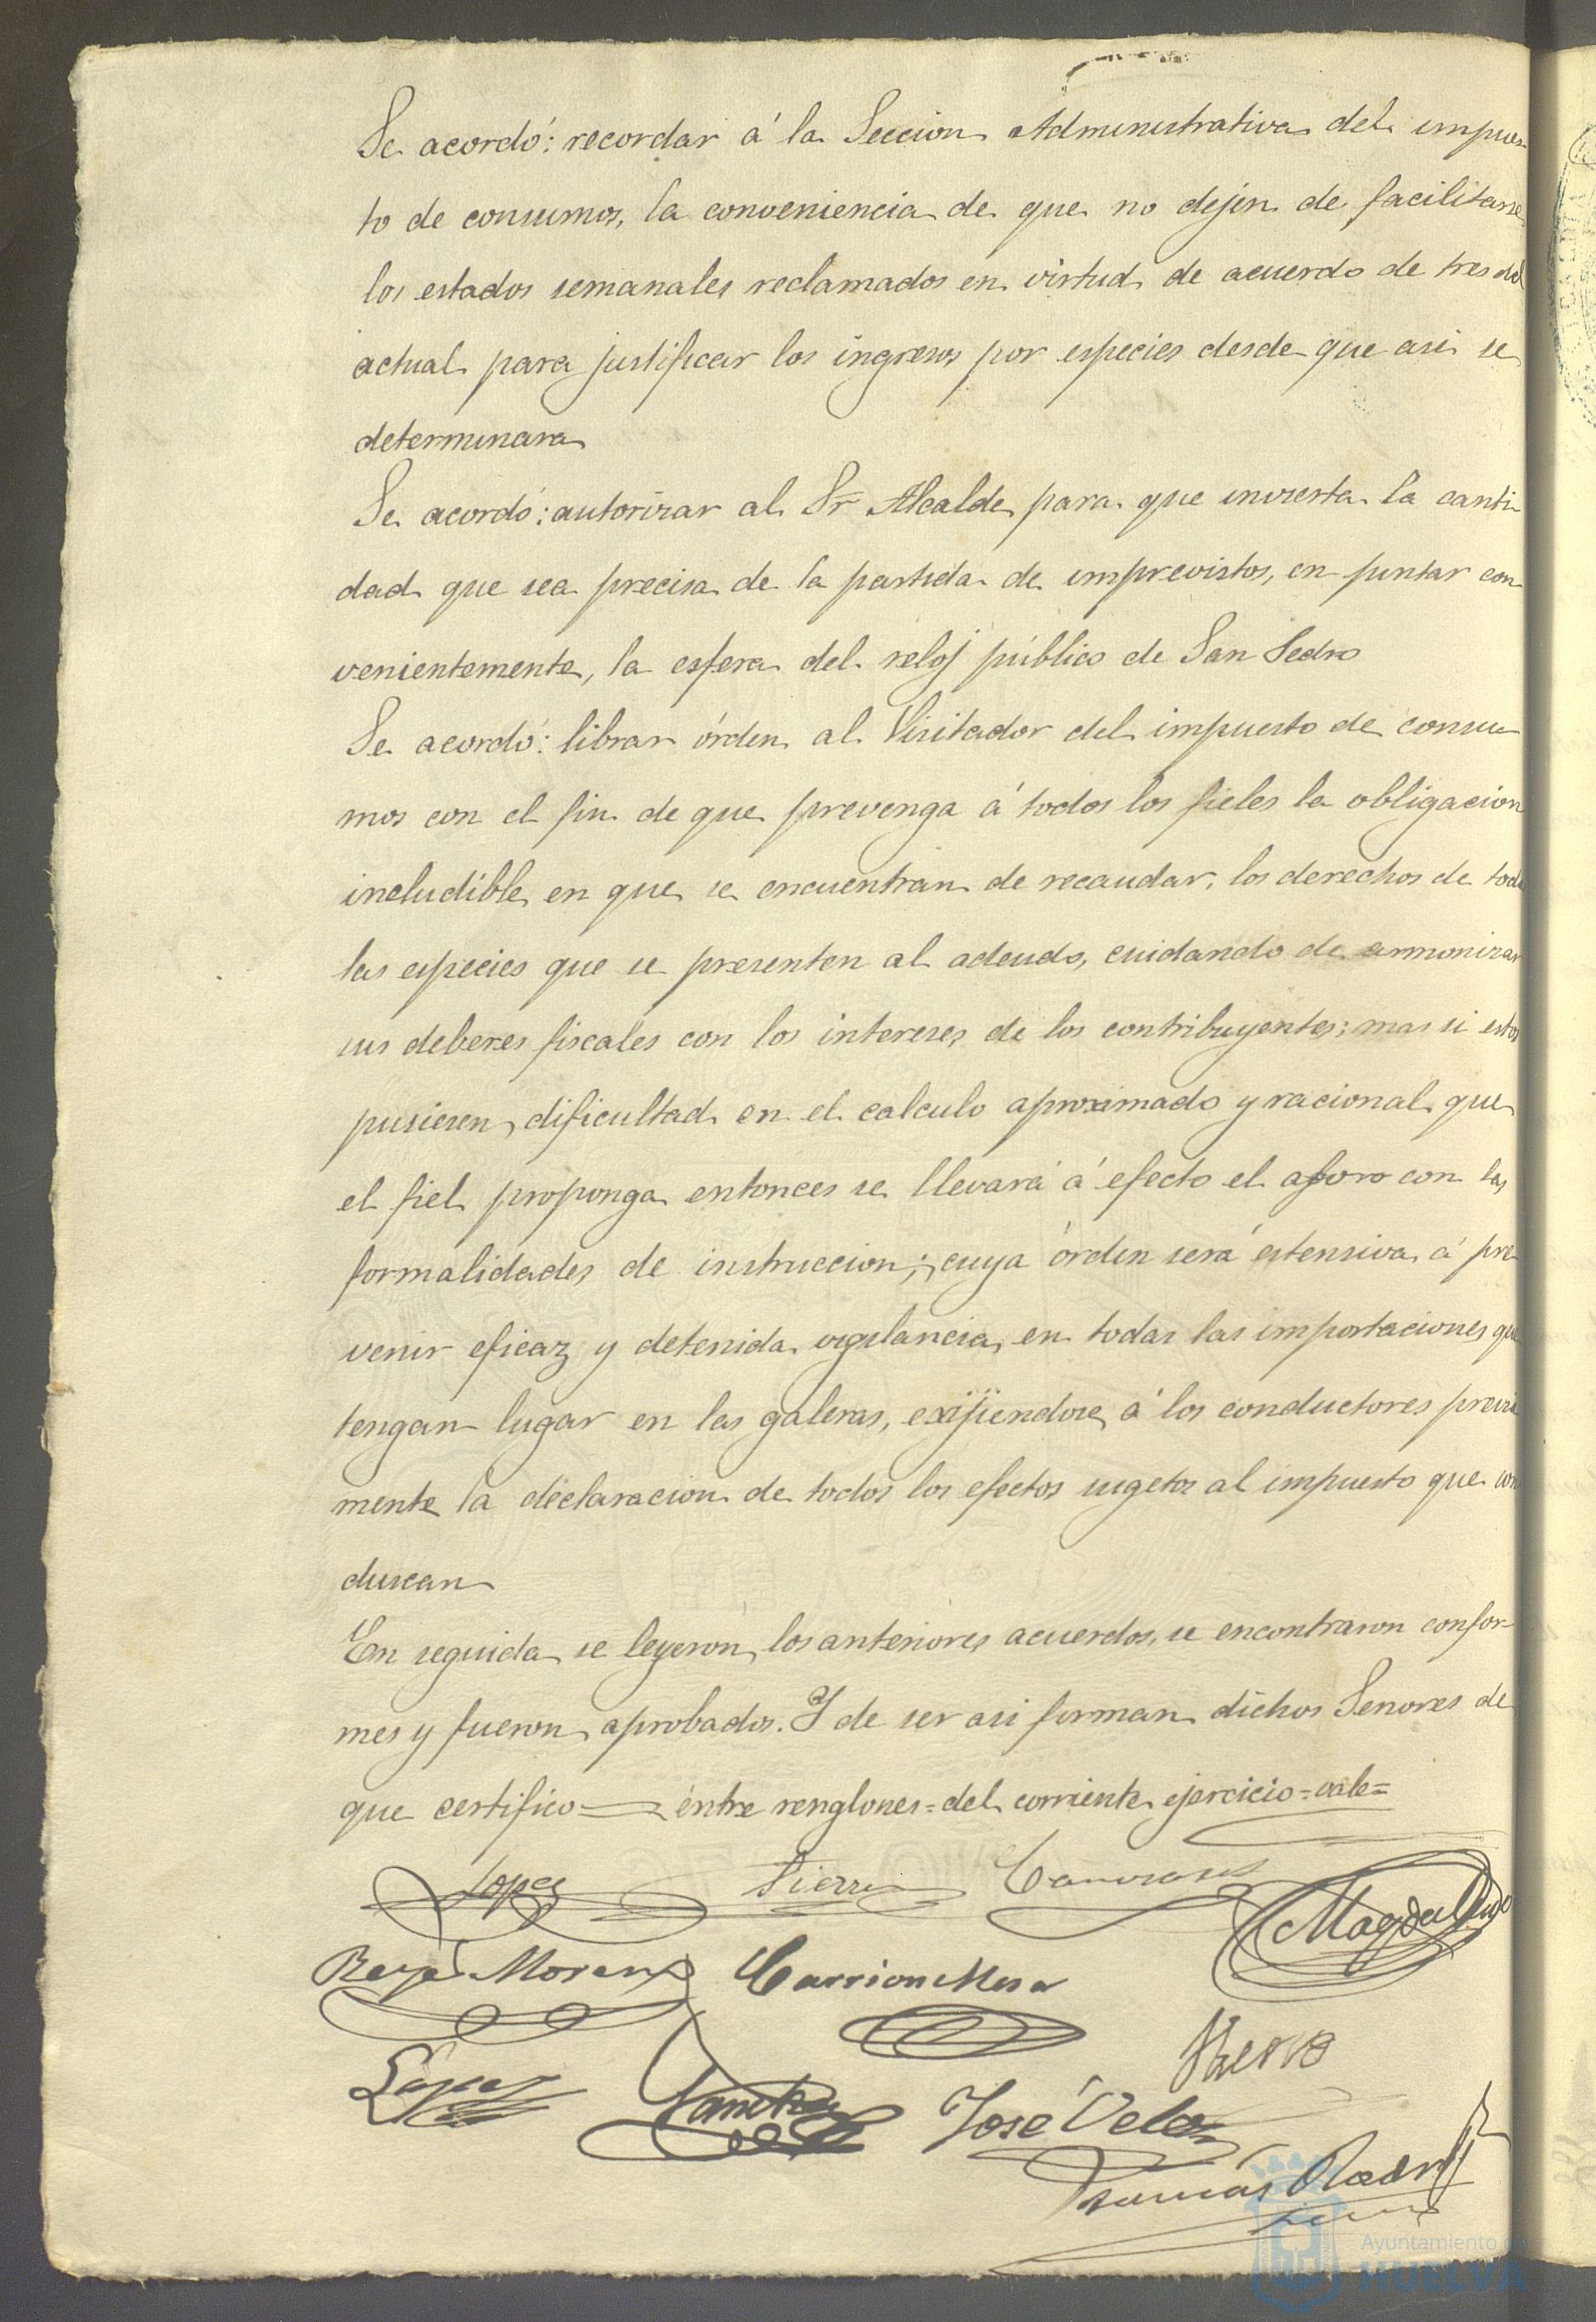 Se acordó: recordar á la Seccion Administrativa del impues-
to de consumos, la conveniencia de que no dejen de facilitarse
los estados semanales reclamados en virtud de acuerdo de tres del
actual para justificar los ingresos por especies desde que asi se
determinara
Se acordó: autorizar al Sr Alcalde para que invierta la canti-
dad que sea precisa de la partida de imprevistos, en pintar con-
venientemente, la esfera del reloj público de San Pedro
Se acordó: librar órden al Visitador del impuesto de consu-
mos con el fin de que prevenga á todos los fieles la obligacion
ineludible en que se encuentran de recaudar, los derechos de todas
las especies que se presenten al adeudo, cuidando de armonizar
sus deberes fiscales con los intereses de los contribuyentes; mas si estos
pusiesen dificultad en el calculo aproximado y racional que
el fiel proponga entonces se llevará á efecto el aforo con las
formalidades de instruccion; cuya órden será estensiva á pre-
venir eficaz y detenida vigilancia en todas las importaciones que
tengan lugar en las galeras, exijiendose á los conductores previa-
mente la declaracion de todos los efectos sugetos al impuesto que con-
duscan
En seguida se leyeron los anteriores acuerdos, se encontraron confor-
mes y fueron aprobados. Y de ser asi firman dichos Señores de
que certifico = entre renglones = del corriente ejercicio = vale =
Lopez Sierra
Moreno Carrion Mesa
Lopez Sanchez José Velez
Tomás Rodrig
Ayuntamiento de
HUELVA